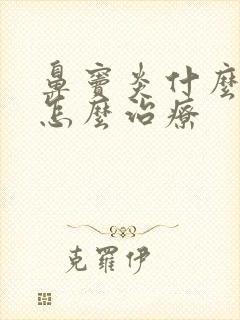 鼻竇炎什麼
怎麼治療
克羅伊